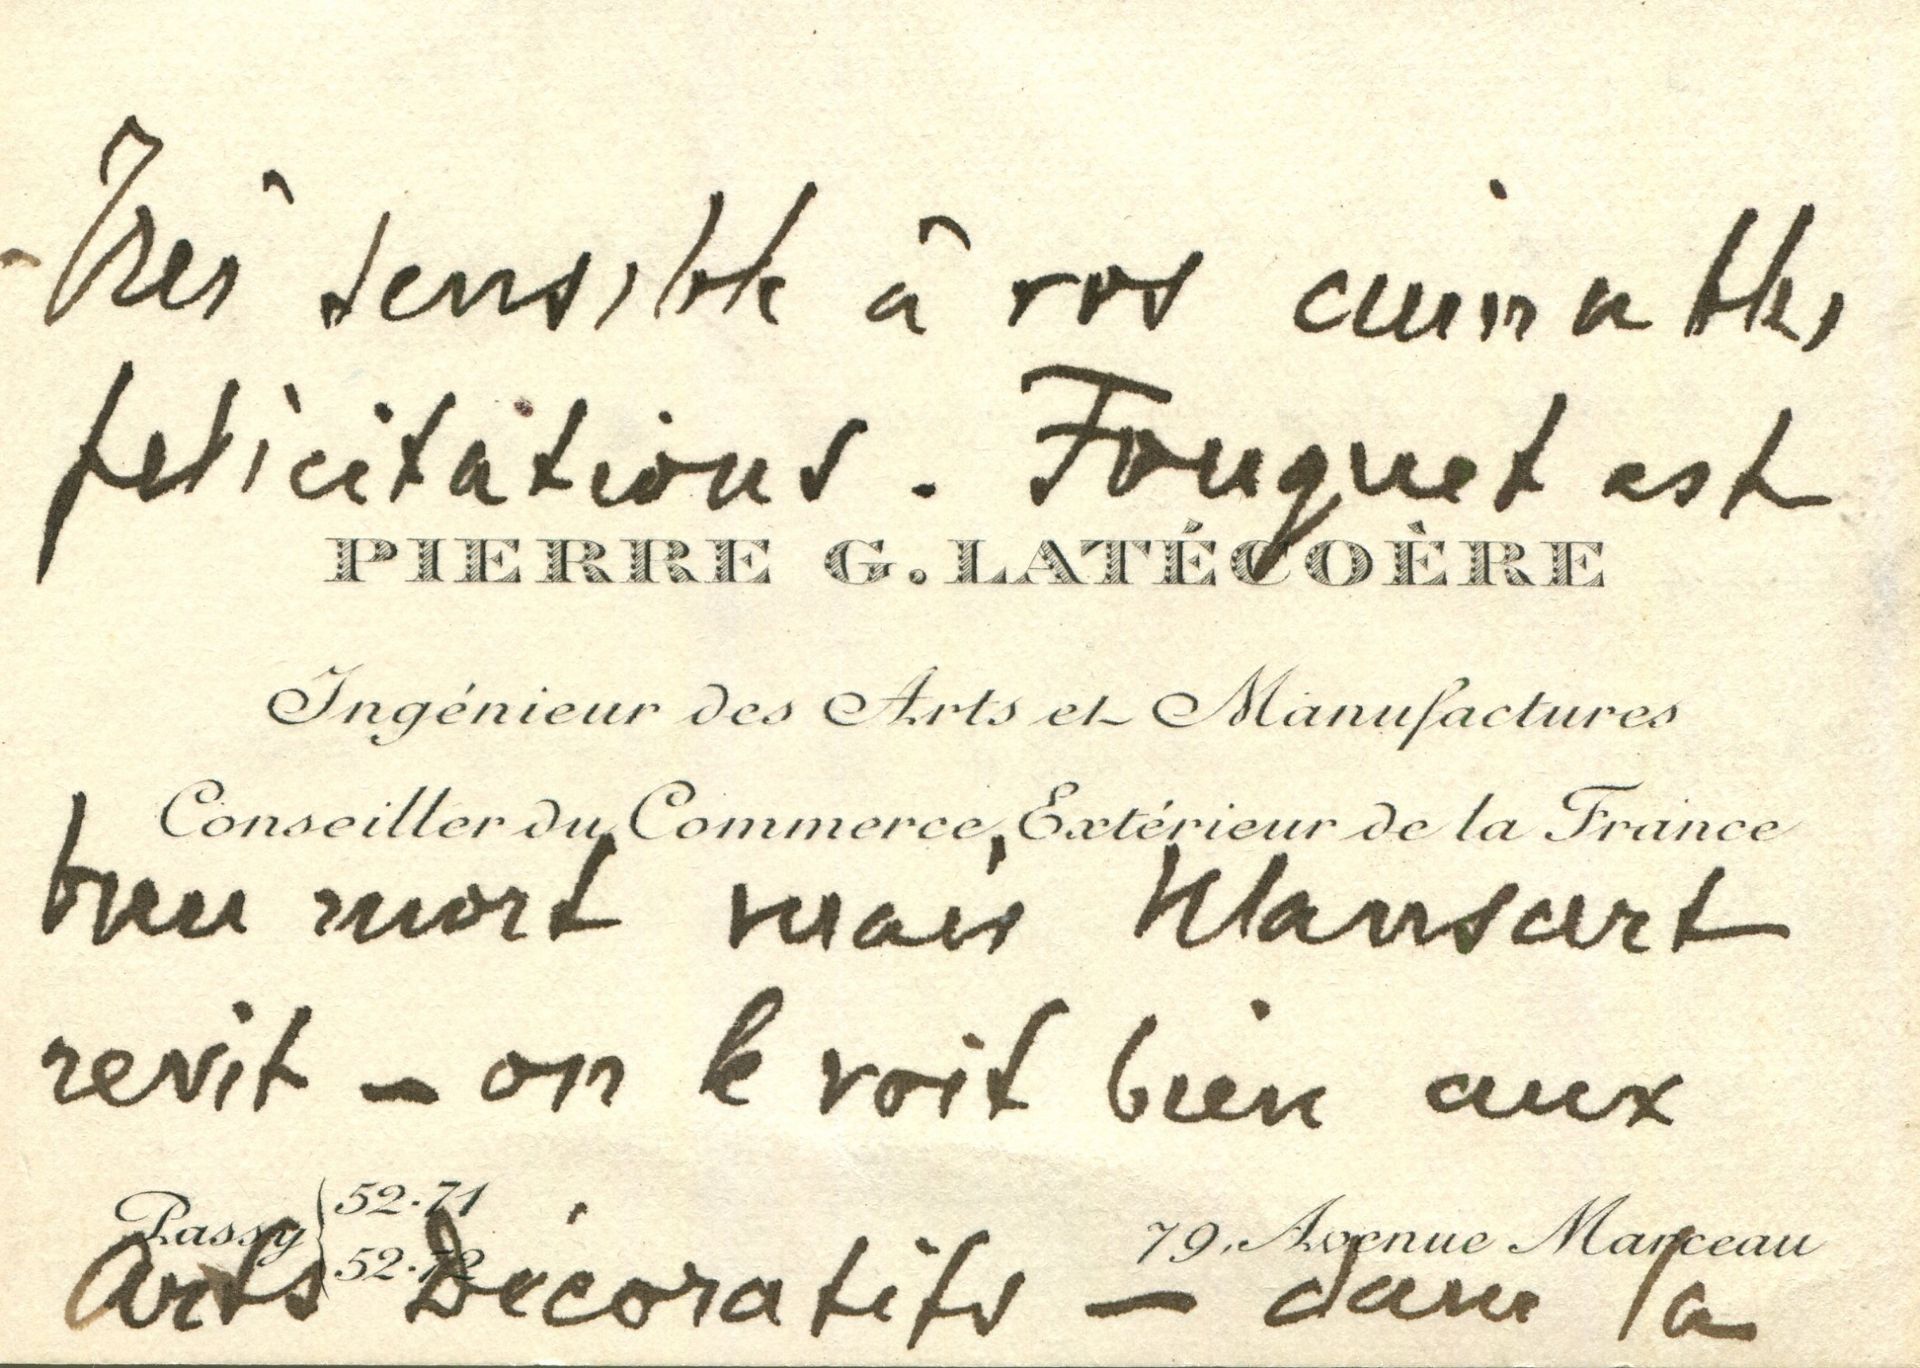 Très sensible à vos aimables
félicitations. Fouquet est
PIERRE G. LATÉCOÈRE
Ingénieur des Arts et Manufactures
Conseiller du Commerce Extérieur de la France
bien mort mais Mansart
revit - on le voit bien aux
Passy 52.71
52.72
79, Avenue Marceau
Arts Décoratifs - dans la